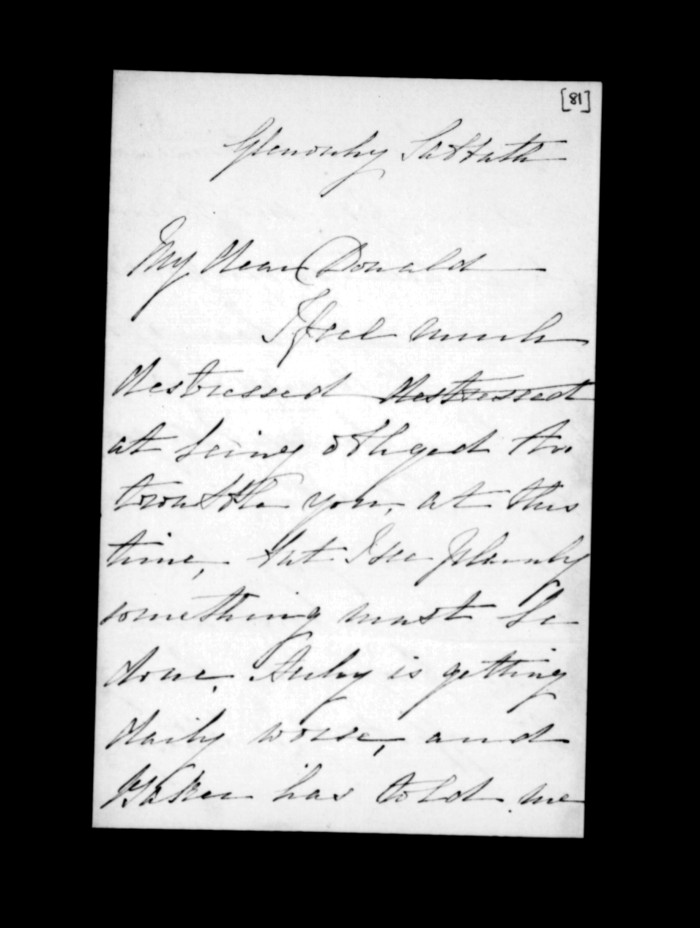 [81]
Glenorchy Sabbath
My dear Donald
I feel much
destressed destressed
at being obliged to
trouble you, at this
time, but I see plainly
something must be
done. Auby is getting
daily worse, and
Baker has told me